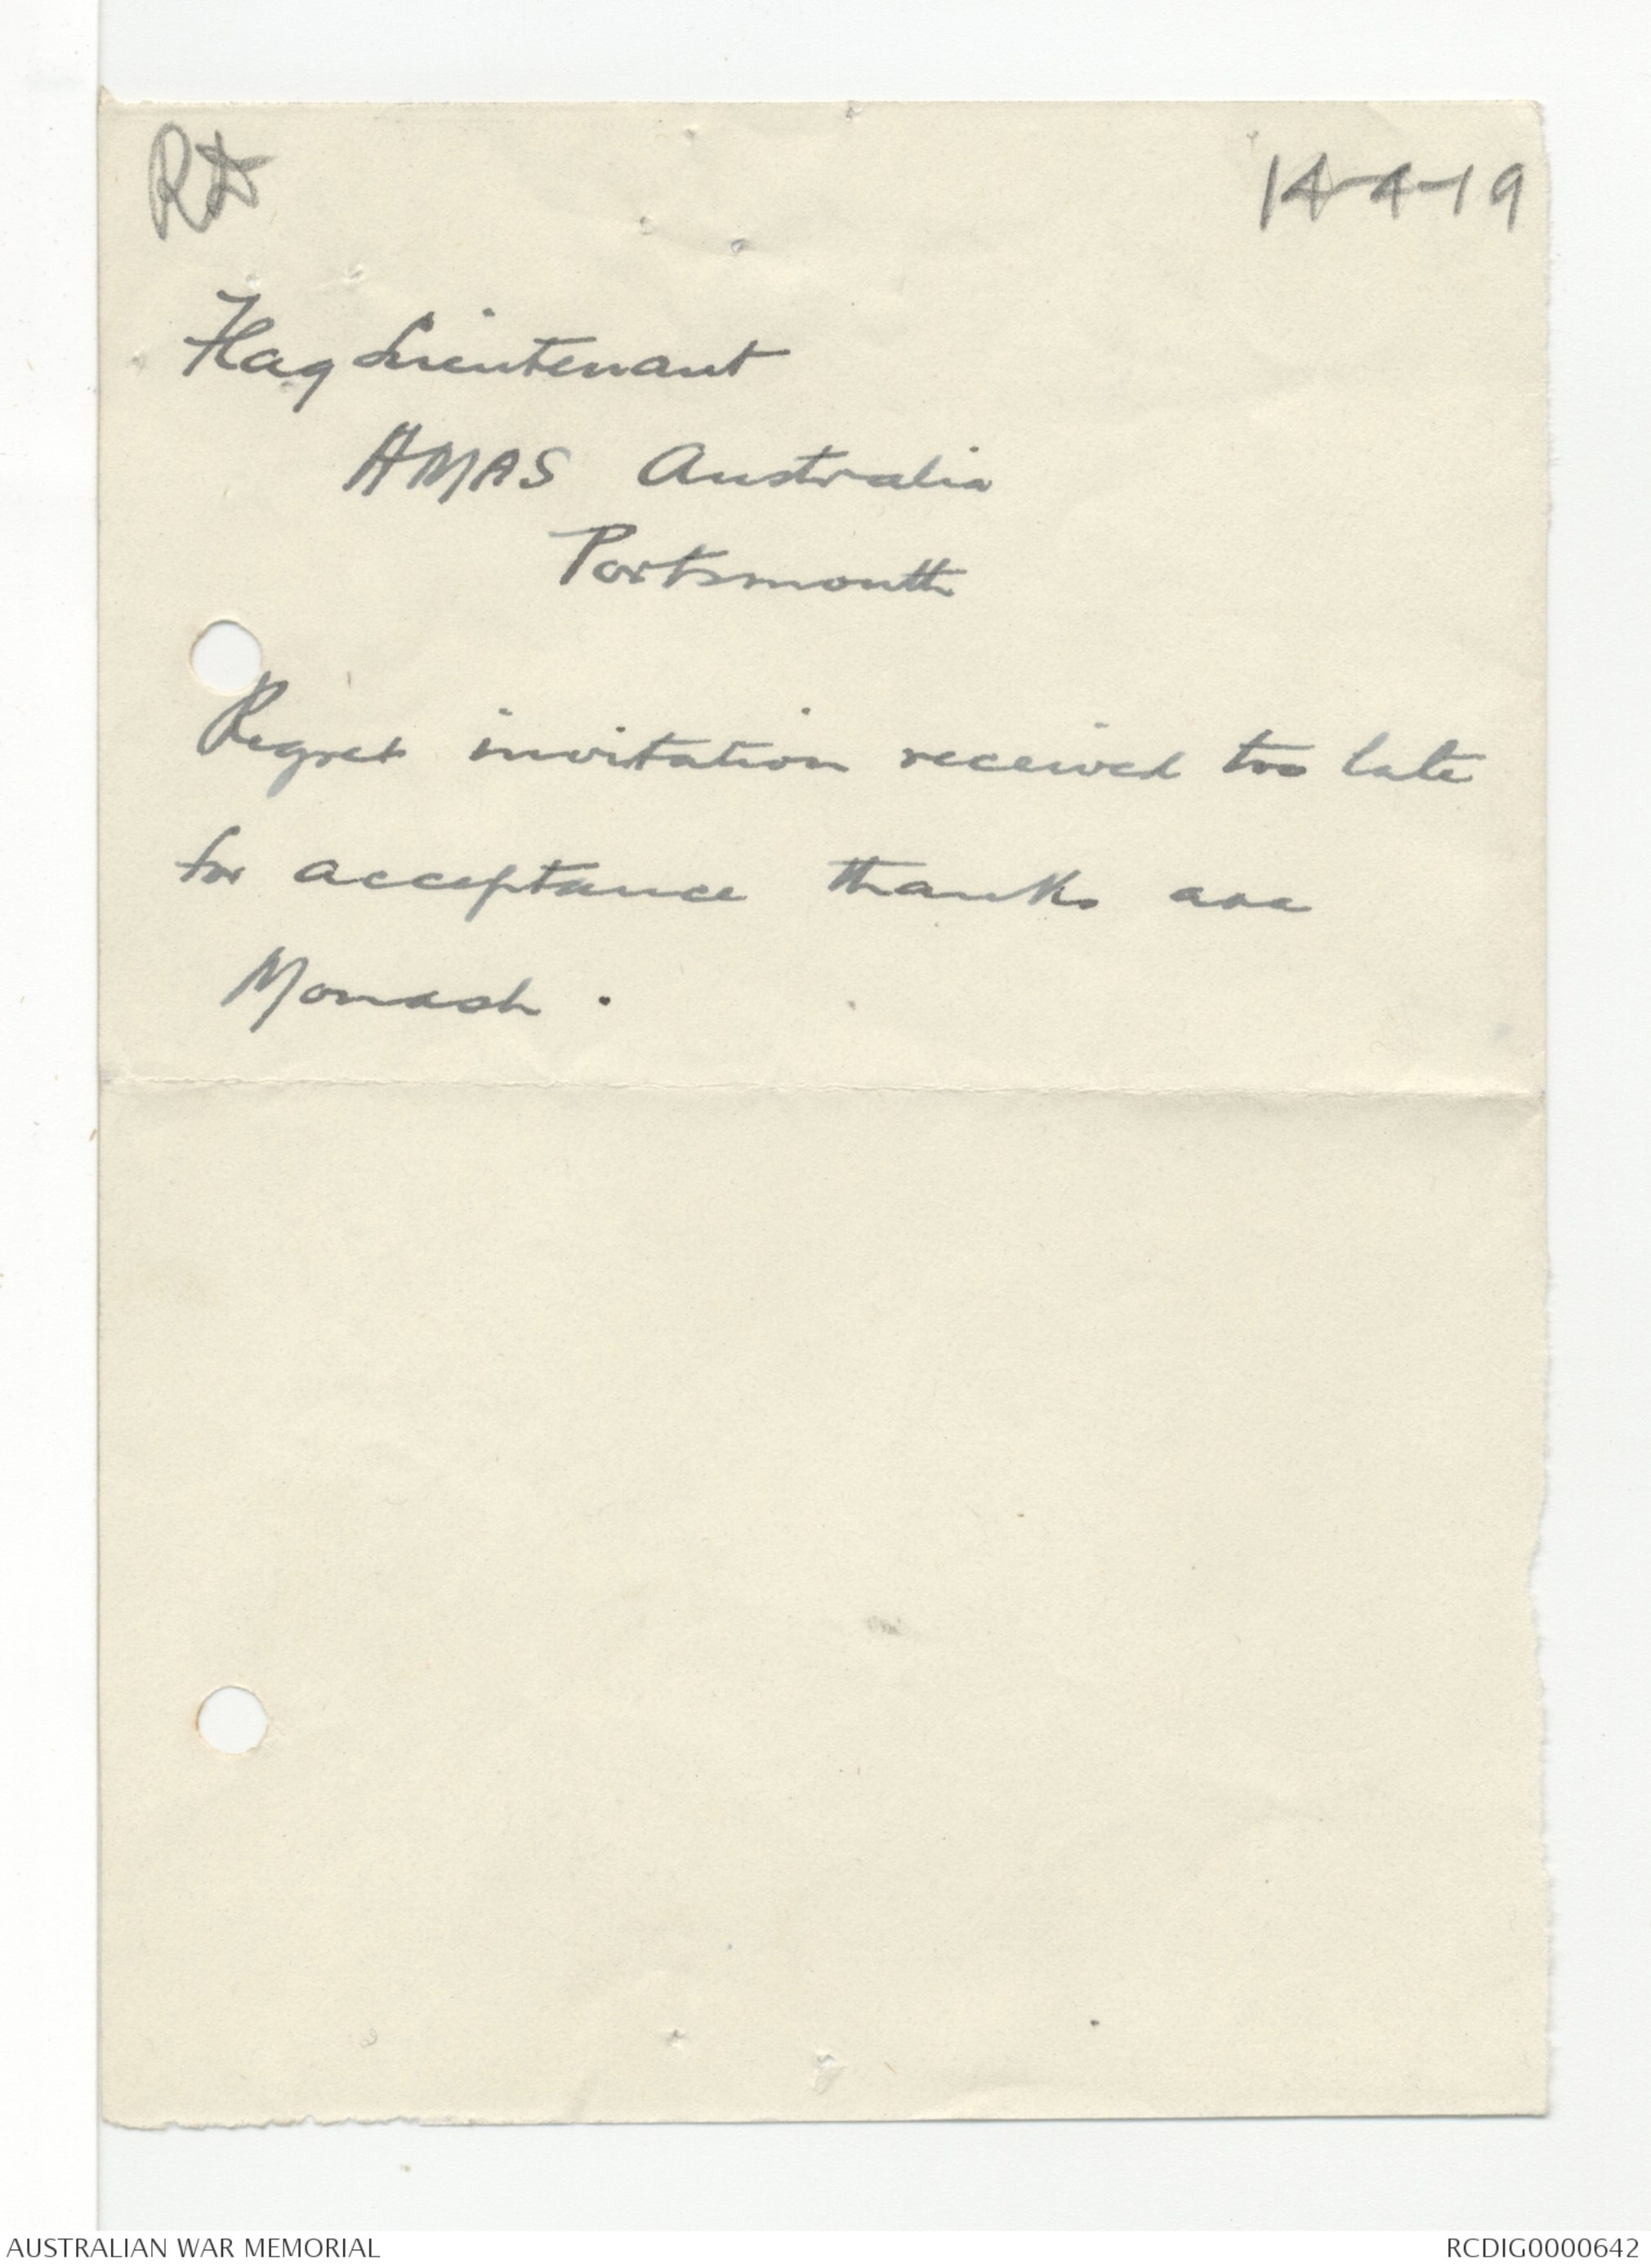 14-4-19
Flag Lieutenant
HMAS Australia
Portsmouth
Regret invitation received too late
for acceptance thanks
Monash.
AUSTRALIAN WAR MEMORIAL
RCDIG0000642